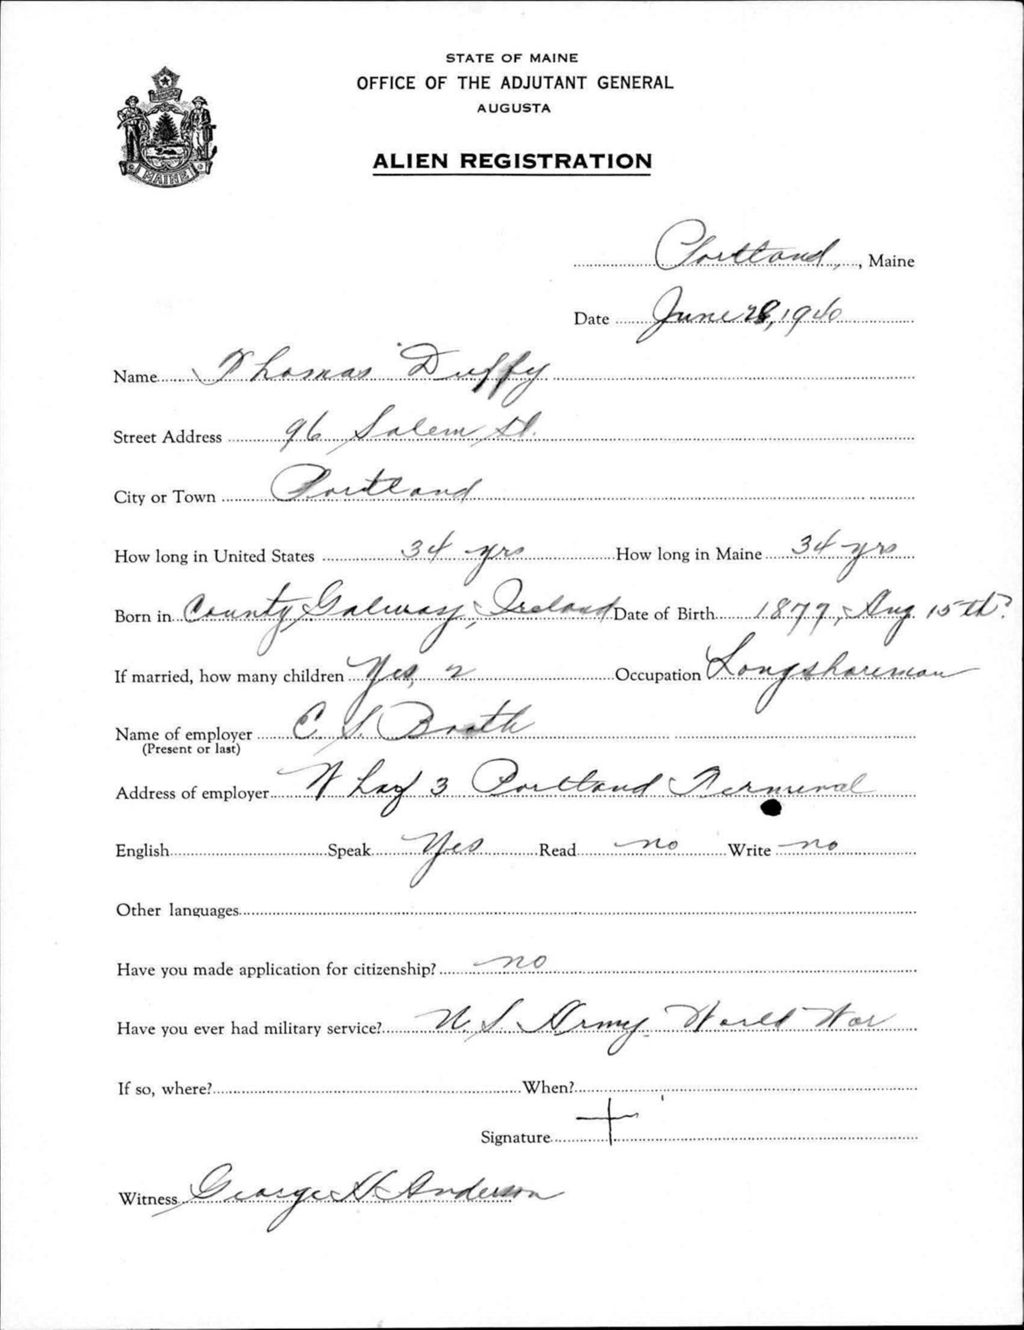 STATE OF MAINE
OFFICE OF THE ADJUTANT GENERAL
AUGUSTA
ALIEN REGISTRATION
MAINE
Portland, , Maine
Date June 28, 1940
Name Thomas Duffy
Street Address 96 Salem St.
City or Town Portland
How long in United States 34 yrs How long in Maine 34 yrs
Born in County Galway, Ireland Date of Birth 1877, Aug 15th?
If married, how many children Yes, 2 Occupation Longshoreman
Name of employer C. S. Booth
(Present or last)
Address of employer Wharf 3 Portland Terminal
English Speak Yes Read no Write no
Other languages
Have you made application for citizenship? no
Have you ever had military service? U. S. Army World War
If so, where? When?
Signature +
Witness George H Anderson